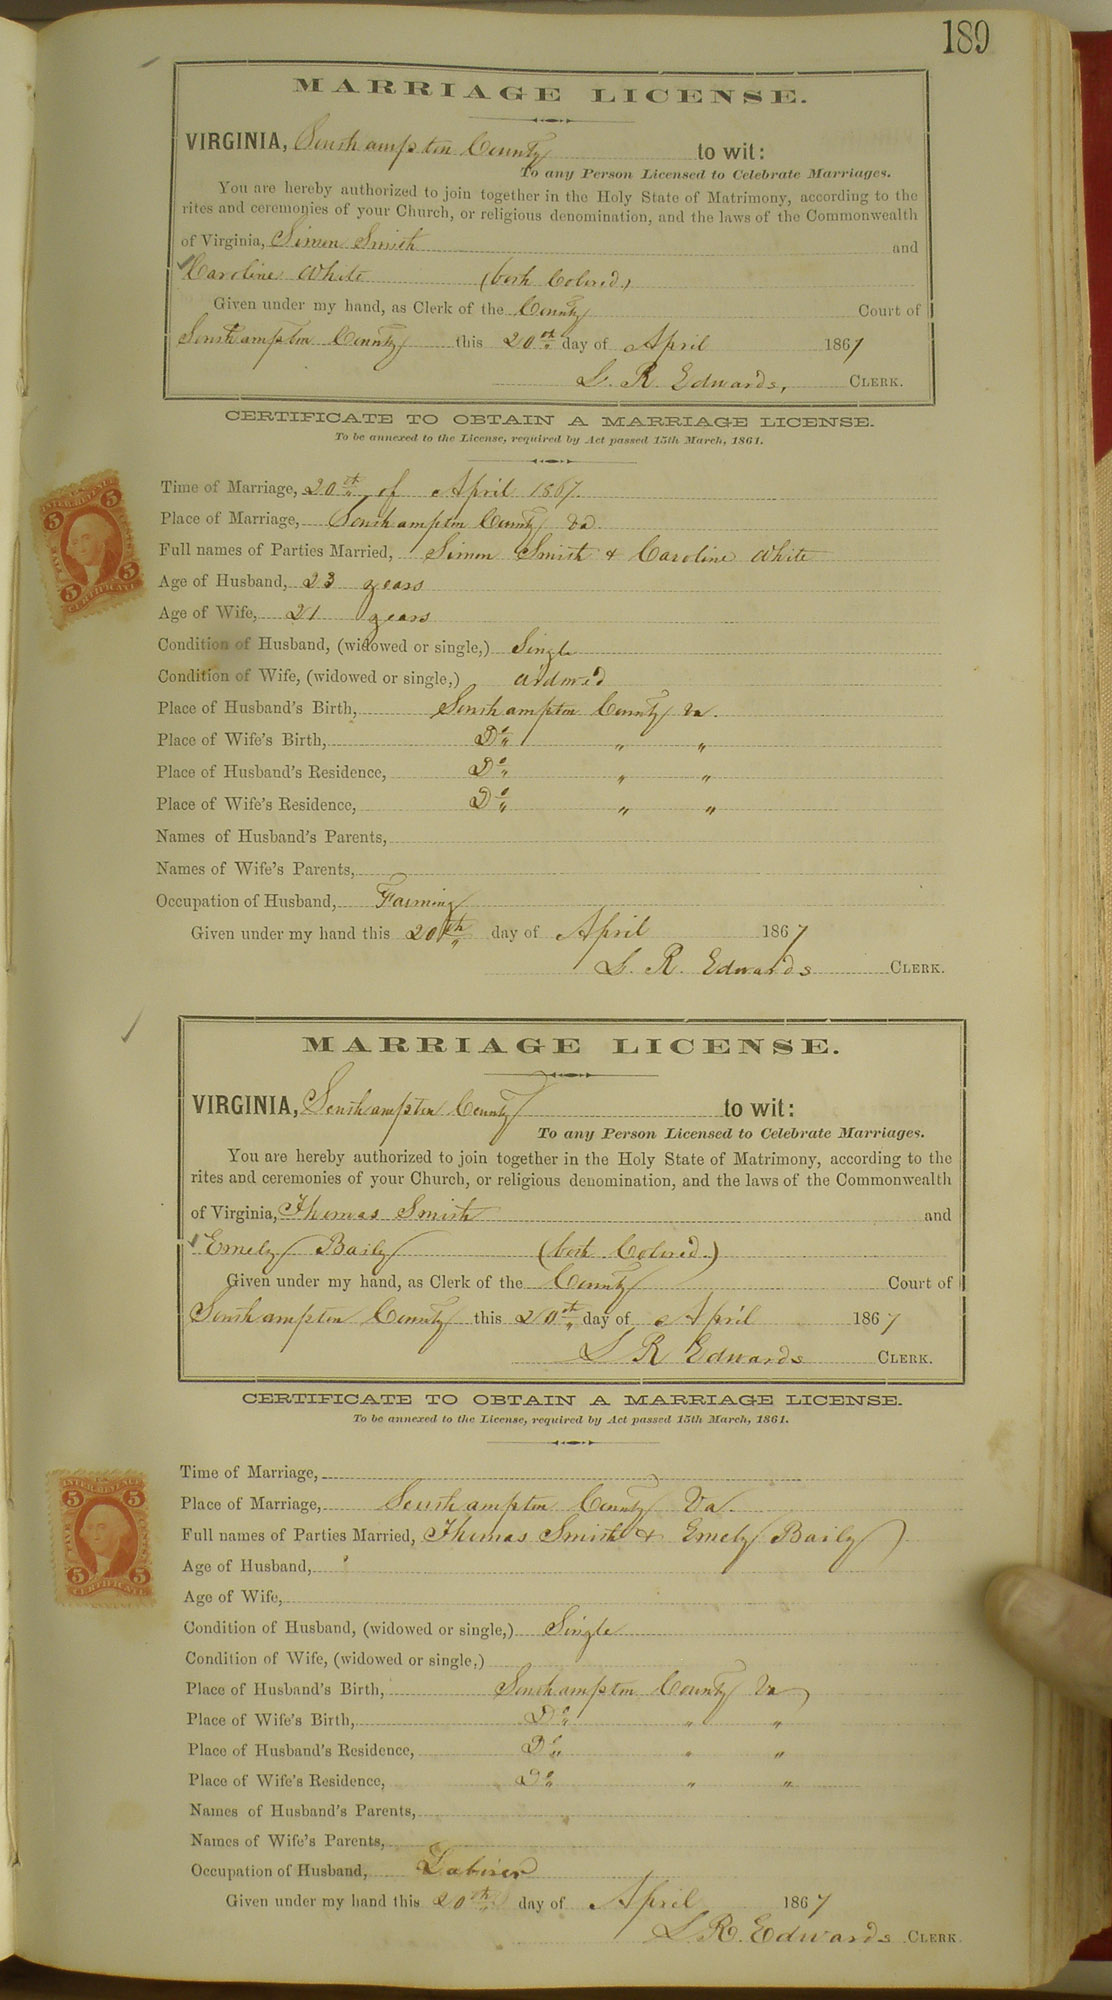 189
MARRIAGE LICENSE.
VIRGINIA, Southampton County to wit:
To any Person Licensed to Celebrate Marriages.
You are hereby authorized to join together in the Holy State of Matrimony, according to the
rites and ceremonies of your Church, or religious denomination, and the laws of the Commonwealth
of Virginia, Simon Smith and
Caroline White (both Colored)
Given under my hand, as Clerk of the County Court of
Southampton County this 20th day of April 1867
L. R. Edwards, CLERK.
CERTIFICATE TO OBTAIN A MARRIAGE LICENSE.
To be annexed to the License, required by Act passed 15th March, 1861.
Time of Marriage, 20th of April 1867.
Place of Marriage, Southampton County Va.
Full names of Parties Married, Simon Smith & Caroline White
Age of Husband, 23 years
Age of Wife, 21 years
Condition of Husband, (widowed or single,) Single
Condition of Wife, (widowed or single,) Widowed
Place of Husband's Birth, Southampton County Va.
Place of Wife's Birth, Do " "
Place of Husband's Residence, Do " "
Place of Wife's Residence, Do " "
Names of Husband's Parents,
Names of Wife's Parents,
Occupation of Husband, Farming
Given under my hand this 20th day of April 1867
L. R. Edwards CLERK.
5 5
5 5
CERTIFICATE
MARRIAGE LICENSE.
VIRGINIA, Southampton County to wit:
To any Person Licensed to Celebrate Marriages.
You are hereby authorized to join together in the Holy State of Matrimony, according to the
rites and ceremonies of your Church, or religious denomination, and the laws of the Commonwealth
of Virginia, Thomas Smith and
Emely Baily (both Colored.)
Given under my hand, as Clerk of the County Court of
Southampton County this 20th day of April 1867
L R Edwards CLERK.
CERTIFICATE TO OBTAIN A MARRIAGE LICENSE.
To be annexed to the License, required by Act passed 15th March, 1861.
Time of Marriage,
Place of Marriage, Southampton County Va.
Full names of Parties Married, Thomas Smith & Emely Baily
Age of Husband,
Age of Wife,
Condition of Husband, (widowed or single,) Single
Condition of Wife, (widowed or single,)
Place of Husband's Birth, Southampton County Va
Place of Wife's Birth, Do " "
Place of Husband's Residence, Do " "
Place of Wife's Residence, Do " "
Names of Husband's Parents,
Names of Wife's Parents,
Occupation of Husband, Laborer
Given under my hand this 20th day of April 1867
L. R. Edwards CLERK.
5 5
5 5
CERTIFICATE